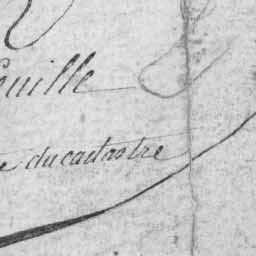 euille
e du cadastre